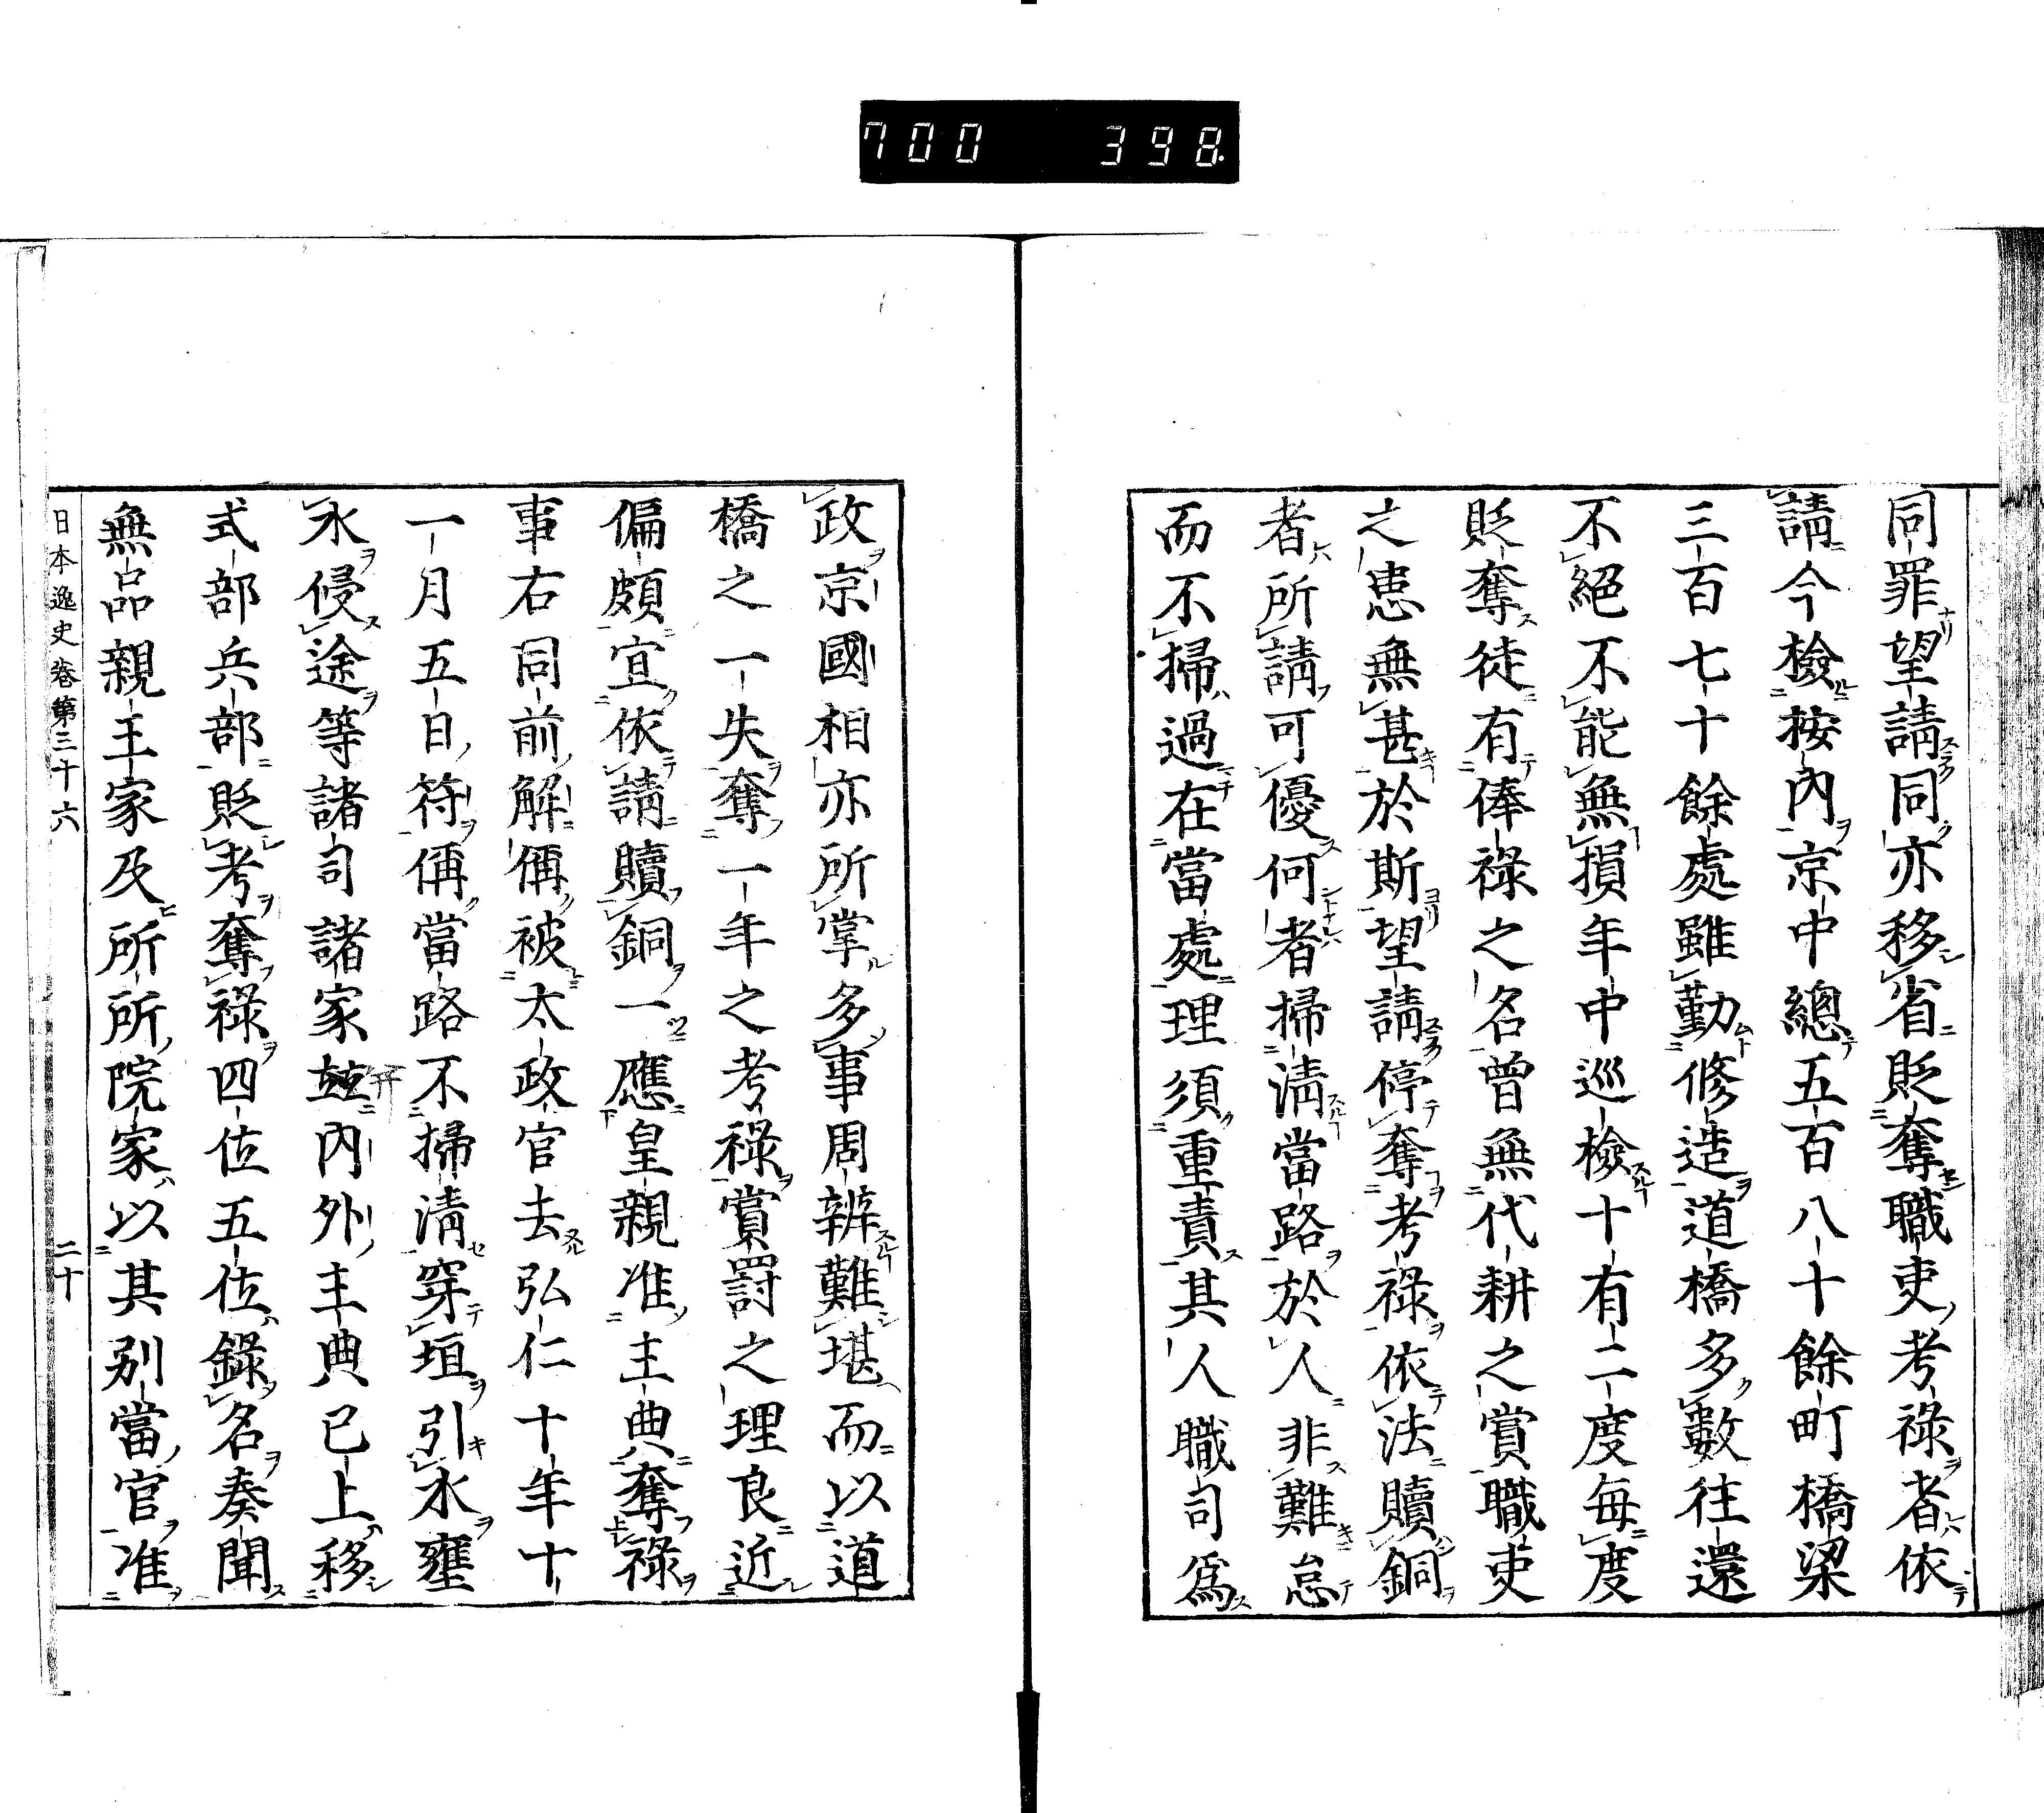 700 398
同罪望請同亦移省貶奪職吏考祿者依
請今檢按內京中總五百八十餘町橋梁
三百七十餘處雖勤修造道橋多數往還
不絕不能無損年中巡檢十有二度每度
貶奪徒有俸祿之名曾無代耕之賞職吏
之患無甚於斯望請停奪考祿依法贖銅
者所請可優何者掃淸當路於人非難怠
而不掃過在當處理須重責其人職司爲
政京國相亦所掌多事周辨難堪而以道
橋之一失奪一年之考祿賞罸之理良近
偏頗宜依請贖銅一應皇親准主典奪祿
事右同前解偁被太政官去弘仁十年十
一月五日符偁當路不掃淸穿垣引水壅
水侵途等諸司諸家並內外主典已上移
式部兵部貶考奪祿四位五位錄名奏聞
無品親王家及所所院家以其別當官准
日本逸史卷第三十六 二十